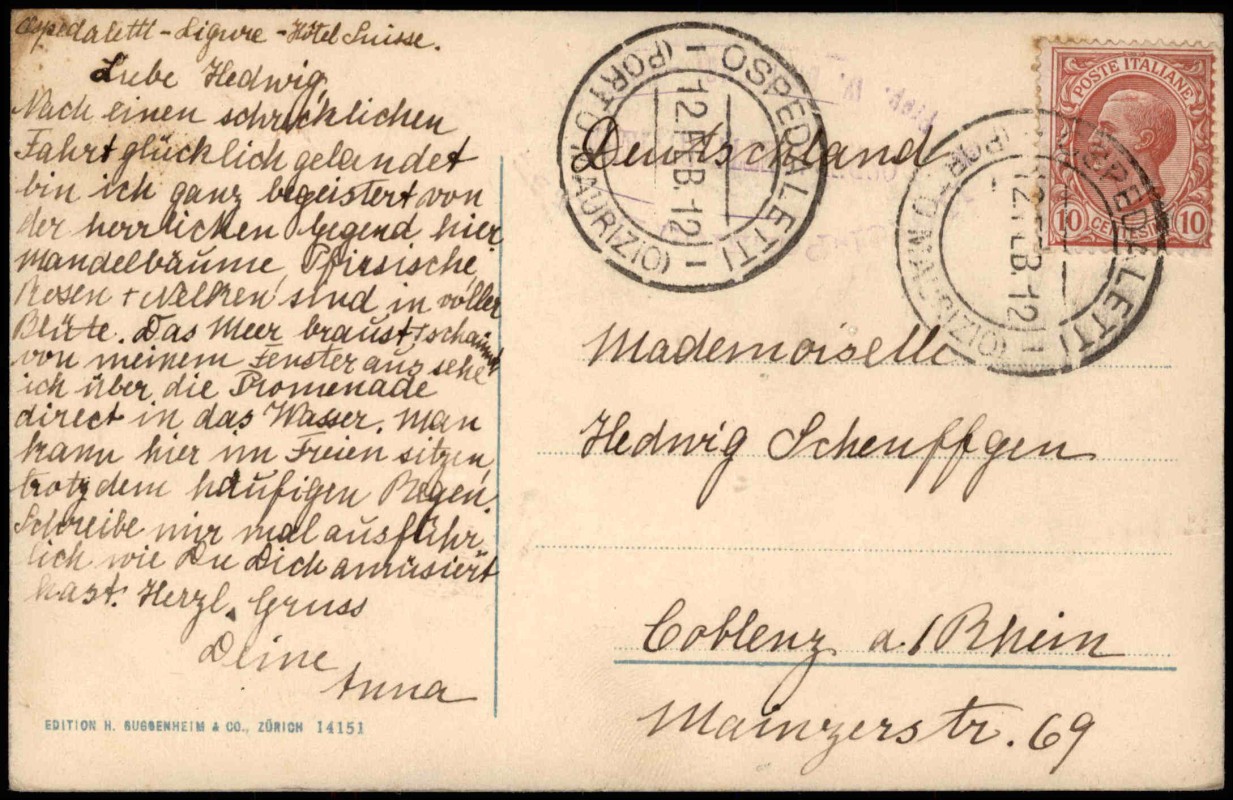 Ospedaletti - Ligure - Hôtel Suisse.
Liebe Hedwig,
Nach einen schrecklichen
Fahrt glücklich gelandet
bin ich ganz begeistert von
der herrlichen Gegend hier,
Mandelbäume, Pfirsische,
Rosen + Nelken sind in voller
Blüte. Das Meer braust + schäumt
von meinem Fenster aus sehe
ich über die Promenade
direct in das Wasser. Man
kann hier im Freien sitzen,
trotz dem häufigen Regen.
Schreibe mir mal ausführ
lich wie Du Dich amüsiert
hast. Herzl. Gruss
Deine
Anna
EDITION H. GUGGENHEIM & CO., ZÜRICH 14151
OSPEDALETTI
(PORTO MAURIZIO)
12 FEB. 12
POSTE ITALIANE
10 CENTESIMI 10
OSPEDALETTI
(PORTO MAURIZIO)
12 FEB. 12
Deutschland
Mademoiselle
Hedwig Scheuffgen
Coblenz a./Rhein
Mainzerstr. 69